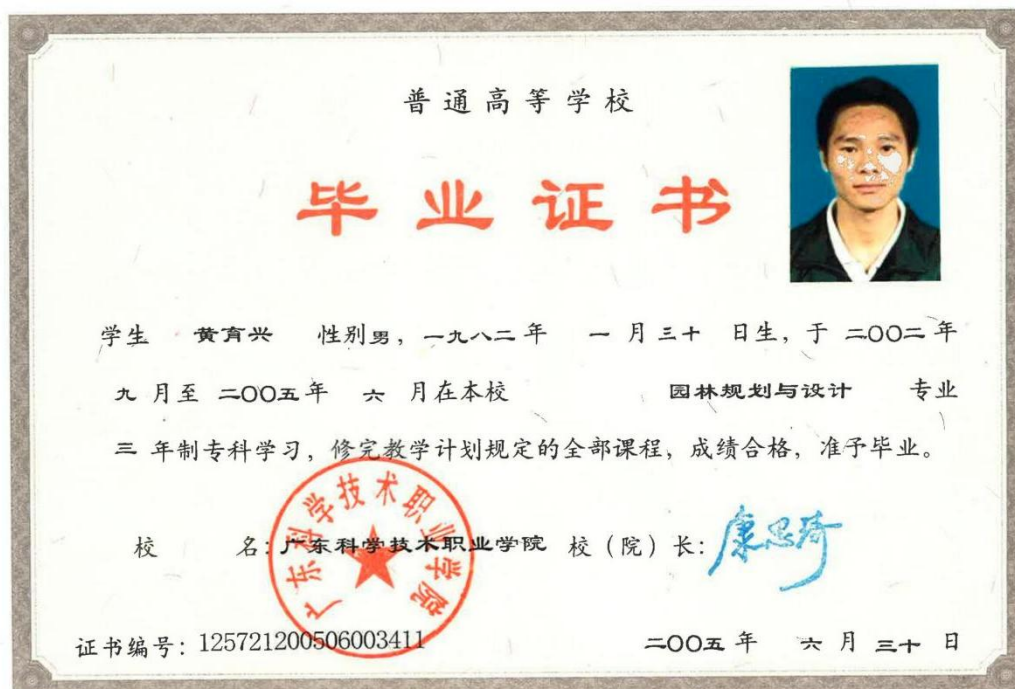 普通高等学校
毕业证书
学生 黄育兴 性别男，一九八二年 一月三十日生，于二〇〇二年
九月至二〇〇五年 六月在本校 园林规划与设计 专业
三年制专科学习，修完教学计划规定的全部课程，成绩合格，准予毕业。
广东科学技术职业学院
校 名：广东科学技术职业学院 校（院）长：康思琦
证书编号：125721200506003411 二〇〇五年 六月三十日